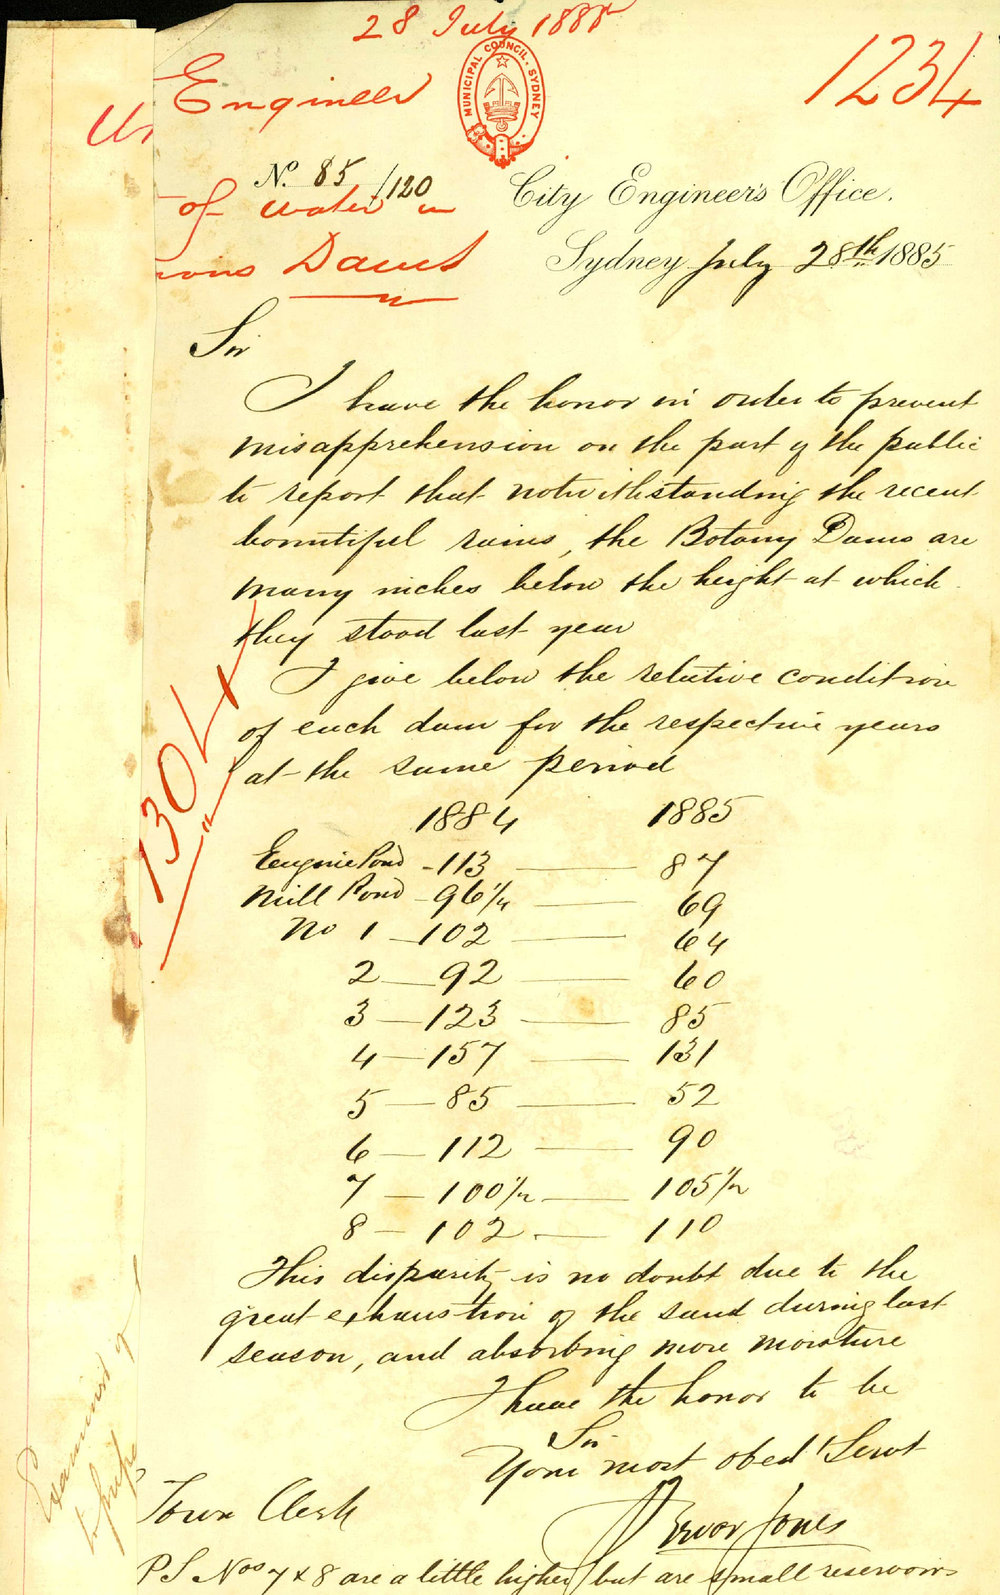 28 July 1885
Engineer
1234
MUNICIPAL COUNCIL. SYDNEY
No. 85/120
of water in
Dams
City Engineer's Office.
Sydney July 28th 1885
Sir
I have the honor in order to prevent
misapprehension on the part of the public
to report that notwithstanding the recent
bountiful rains, the Botany Dams are
many inches below the height at which
they stood last year
I give below the relative condition
of each dam for the respective years
at the same period
1304
1884 1885
Engine Pond - 113 — 87
Mill Pond - 96 1/4 — 69
No 1 - 102 — 64
2 - 92 — 60
3 - 123 — 85
4 - 157 — 131
5 - 85 — 52
6 - 112 — 90
7 - 100 1/2 — 105 1/2
8 - 102 — 110
This disparity is no doubt due to the
great exhaustion of the sand during last
season, and absorbing more moisture
I have the honor to be
Sir
Your most obed Servt
Trevor Jones
Town Clerk
P S Nos 7 & 8 are a little higher but are small reservoirs
Examined